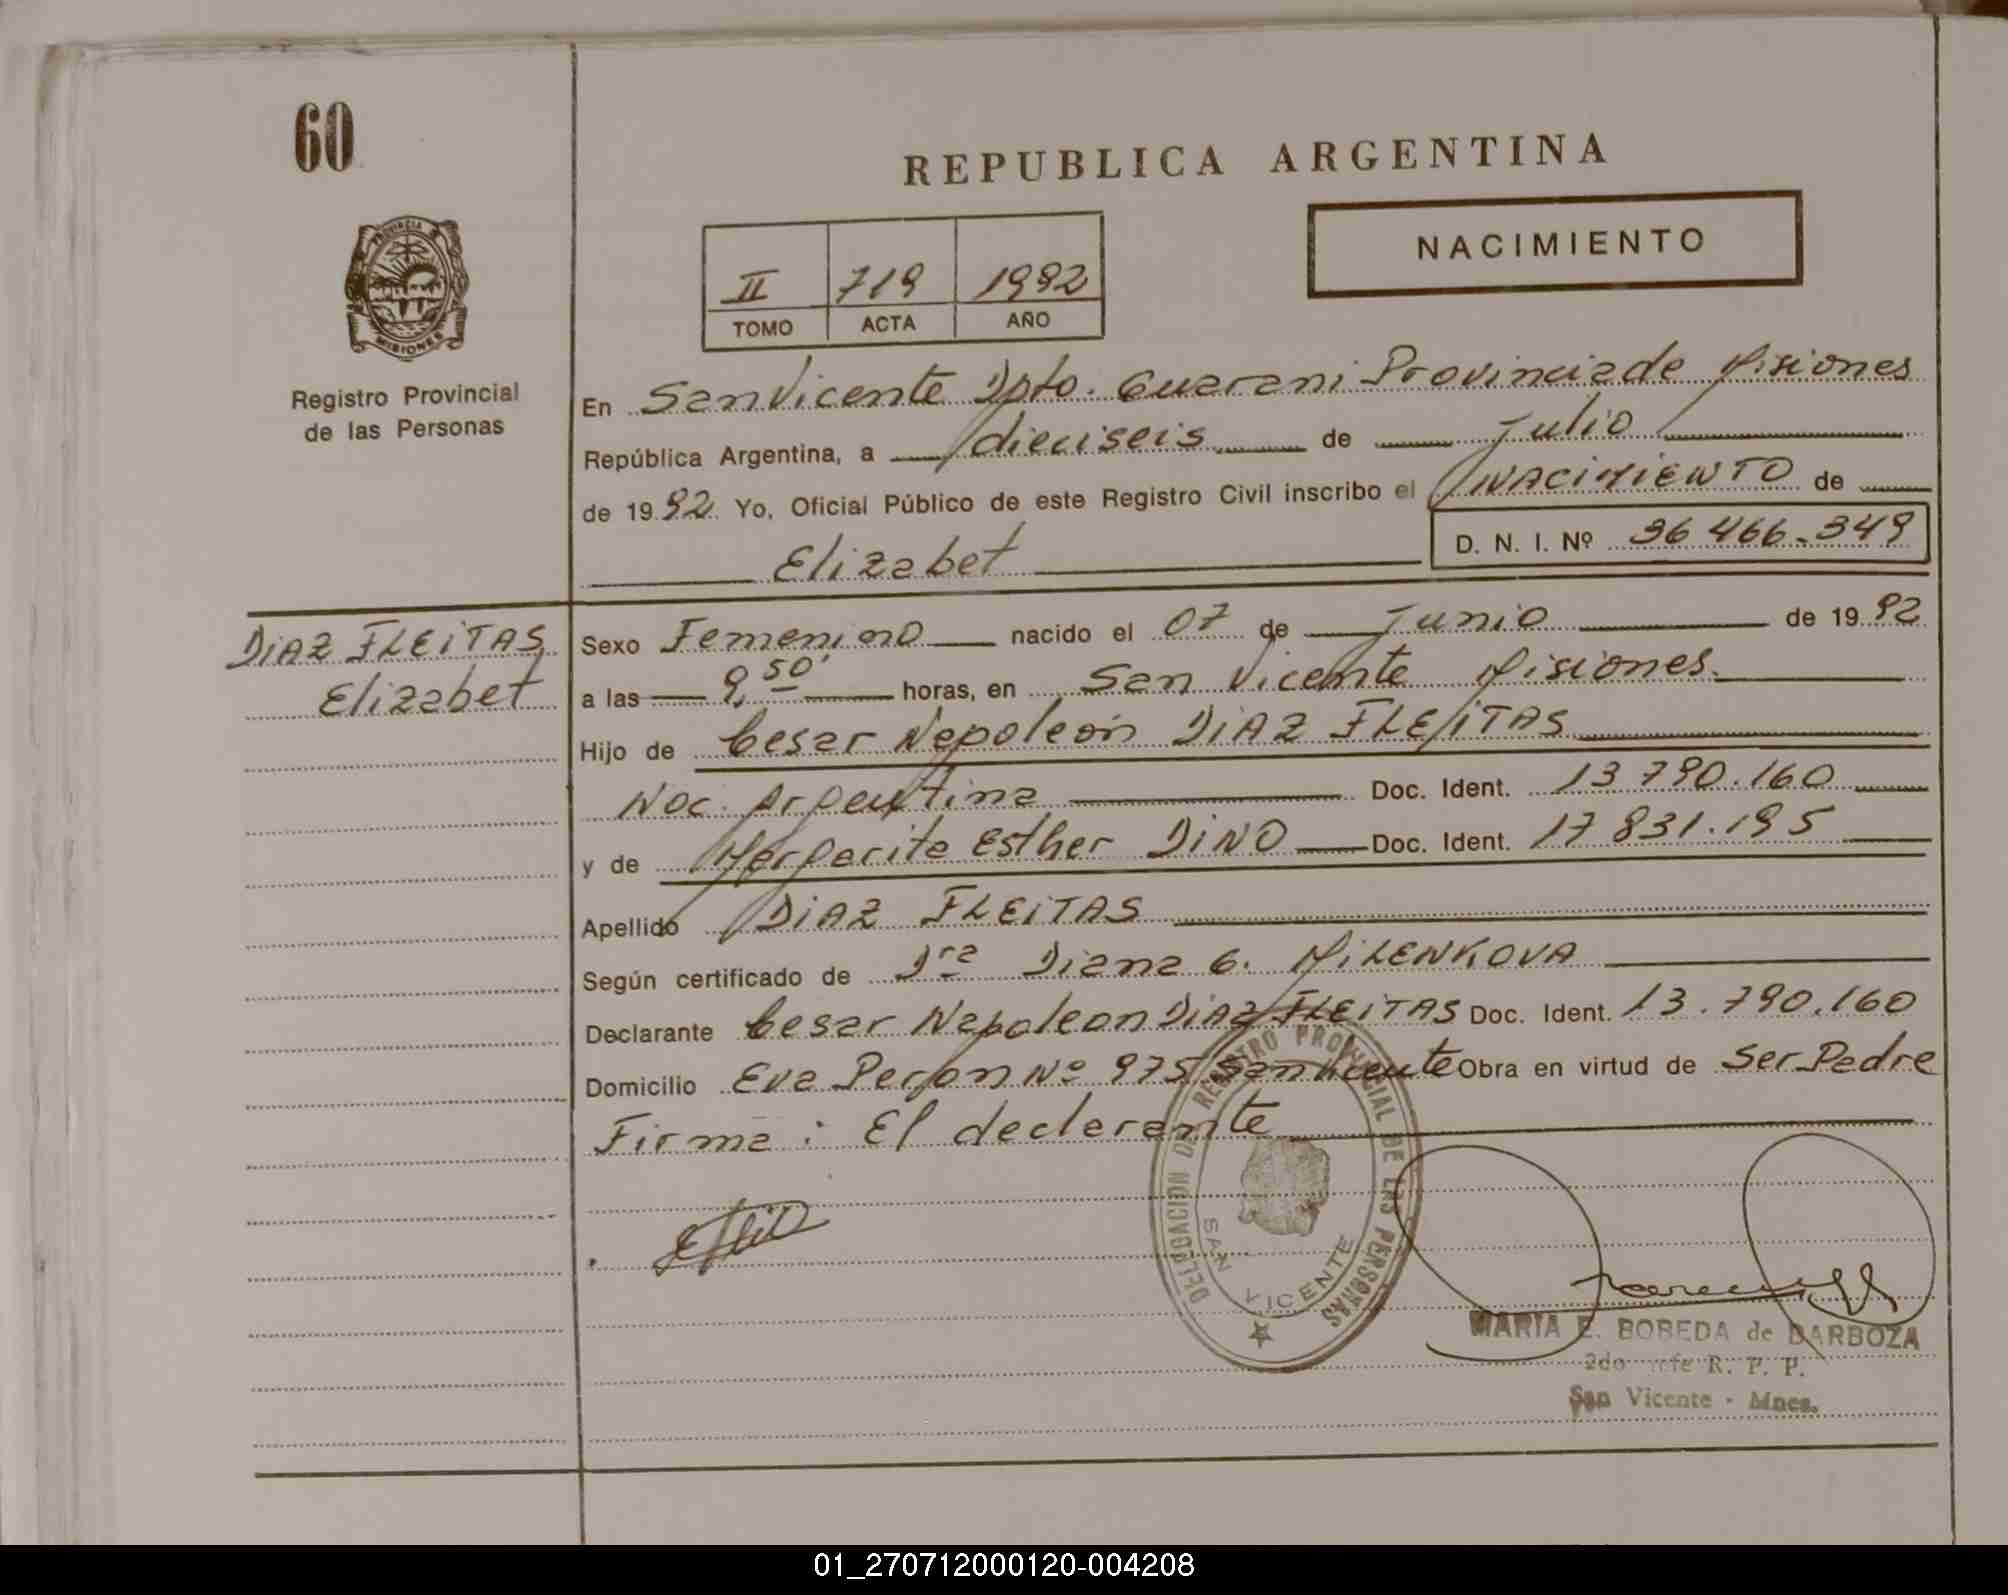 60
REPUBLICA ARGENTINA
NACIMIENTO
II 719 1992
TOMO ACTA AÑO
PROVINCIA DE
MISIONES
Registro Provincial
de las Personas
En San Vicente Dpto. Guarani Provincia de Misiones
República Argentina, a dieciseis de Julio
de 1992 Yo, Oficial Público de este Registro Civil inscribo el NACIMIENTO de
Elizabet D. N. I. Nº 36 466.349
DIAZ FLEITAS
Elizabet
Sexo Femenino nacido el 07 de Junio de 1992
a las 9,50' horas, en San Vicente Misiones.
Hijo de Cesar Napoleón DIAZ FLEITAS
Nac. Argentina Doc. Ident. 13 790.160
y de Margarita Esther DINO Doc. Ident. 17 831.195
Apellido DIAZ FLEITAS
Según certificado de Dra Diana G. MILENKOVA
Declarante Cesar Napoleon DIAZ FLEITAS Doc. Ident. 13.790.160
Domicilio Eva Peron Nº 975 San Vicente Obra en virtud de Ser Padre
Firma: El declarante
DELEGACION DEL REGISTRO PROVINCIAL DE LAS PERSONAS
SAN VICENTE
MARIA E. BOBEDA de BARBOZA
2do Jefe R. P. P.
San Vicente - Mnes.
01_270712000120-004208